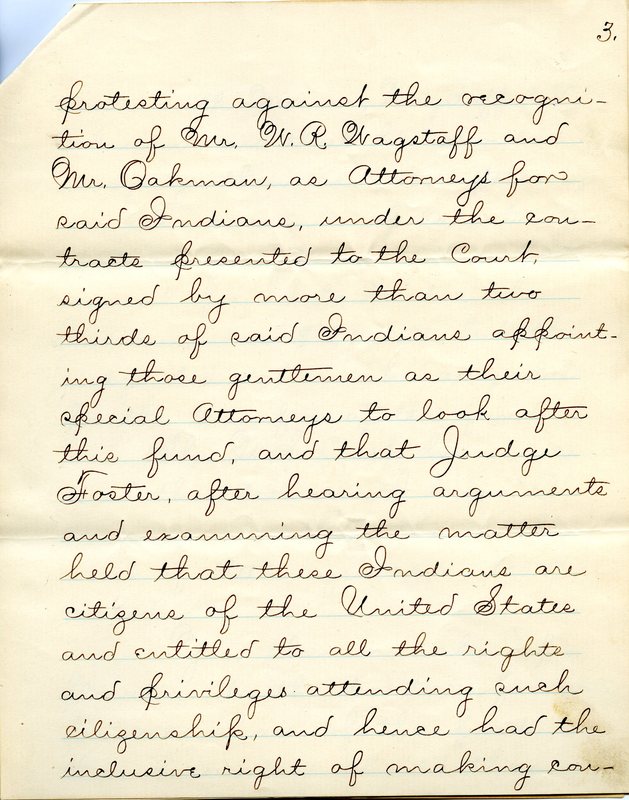 3.
protesting against the recogni-
tion of Mr. W. R. Wagstaff and
Mr. Oakman, as Attorneys for
said Indians, under the con-
tracts presented to the Court,
signed by more than two
thirds of said Indians appoint-
ing those gentlemen as their
special Attorneys to look after
this fund, and that Judge
Foster, after hearing arguments
and examining the matter
held that these Indians are
citizens of the United States
and entitled to all the rights
and privileges attending such
citizenship, and hence had the
inclusive right of making con-